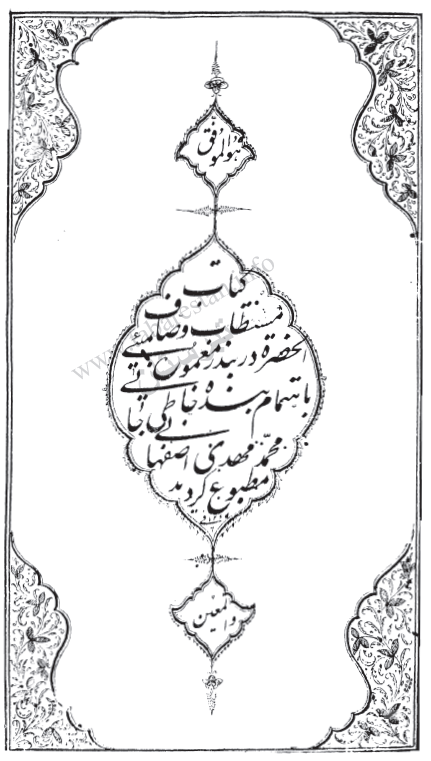 هوالموفق
کتاب
مستطاب وصاف
الحضرة در بندر معمور بمبئی
باهتمام بنده خاطی جانی
محمد مهدی اصفهانی
مطبوع گردید
والمعین
www.tabarestan.info